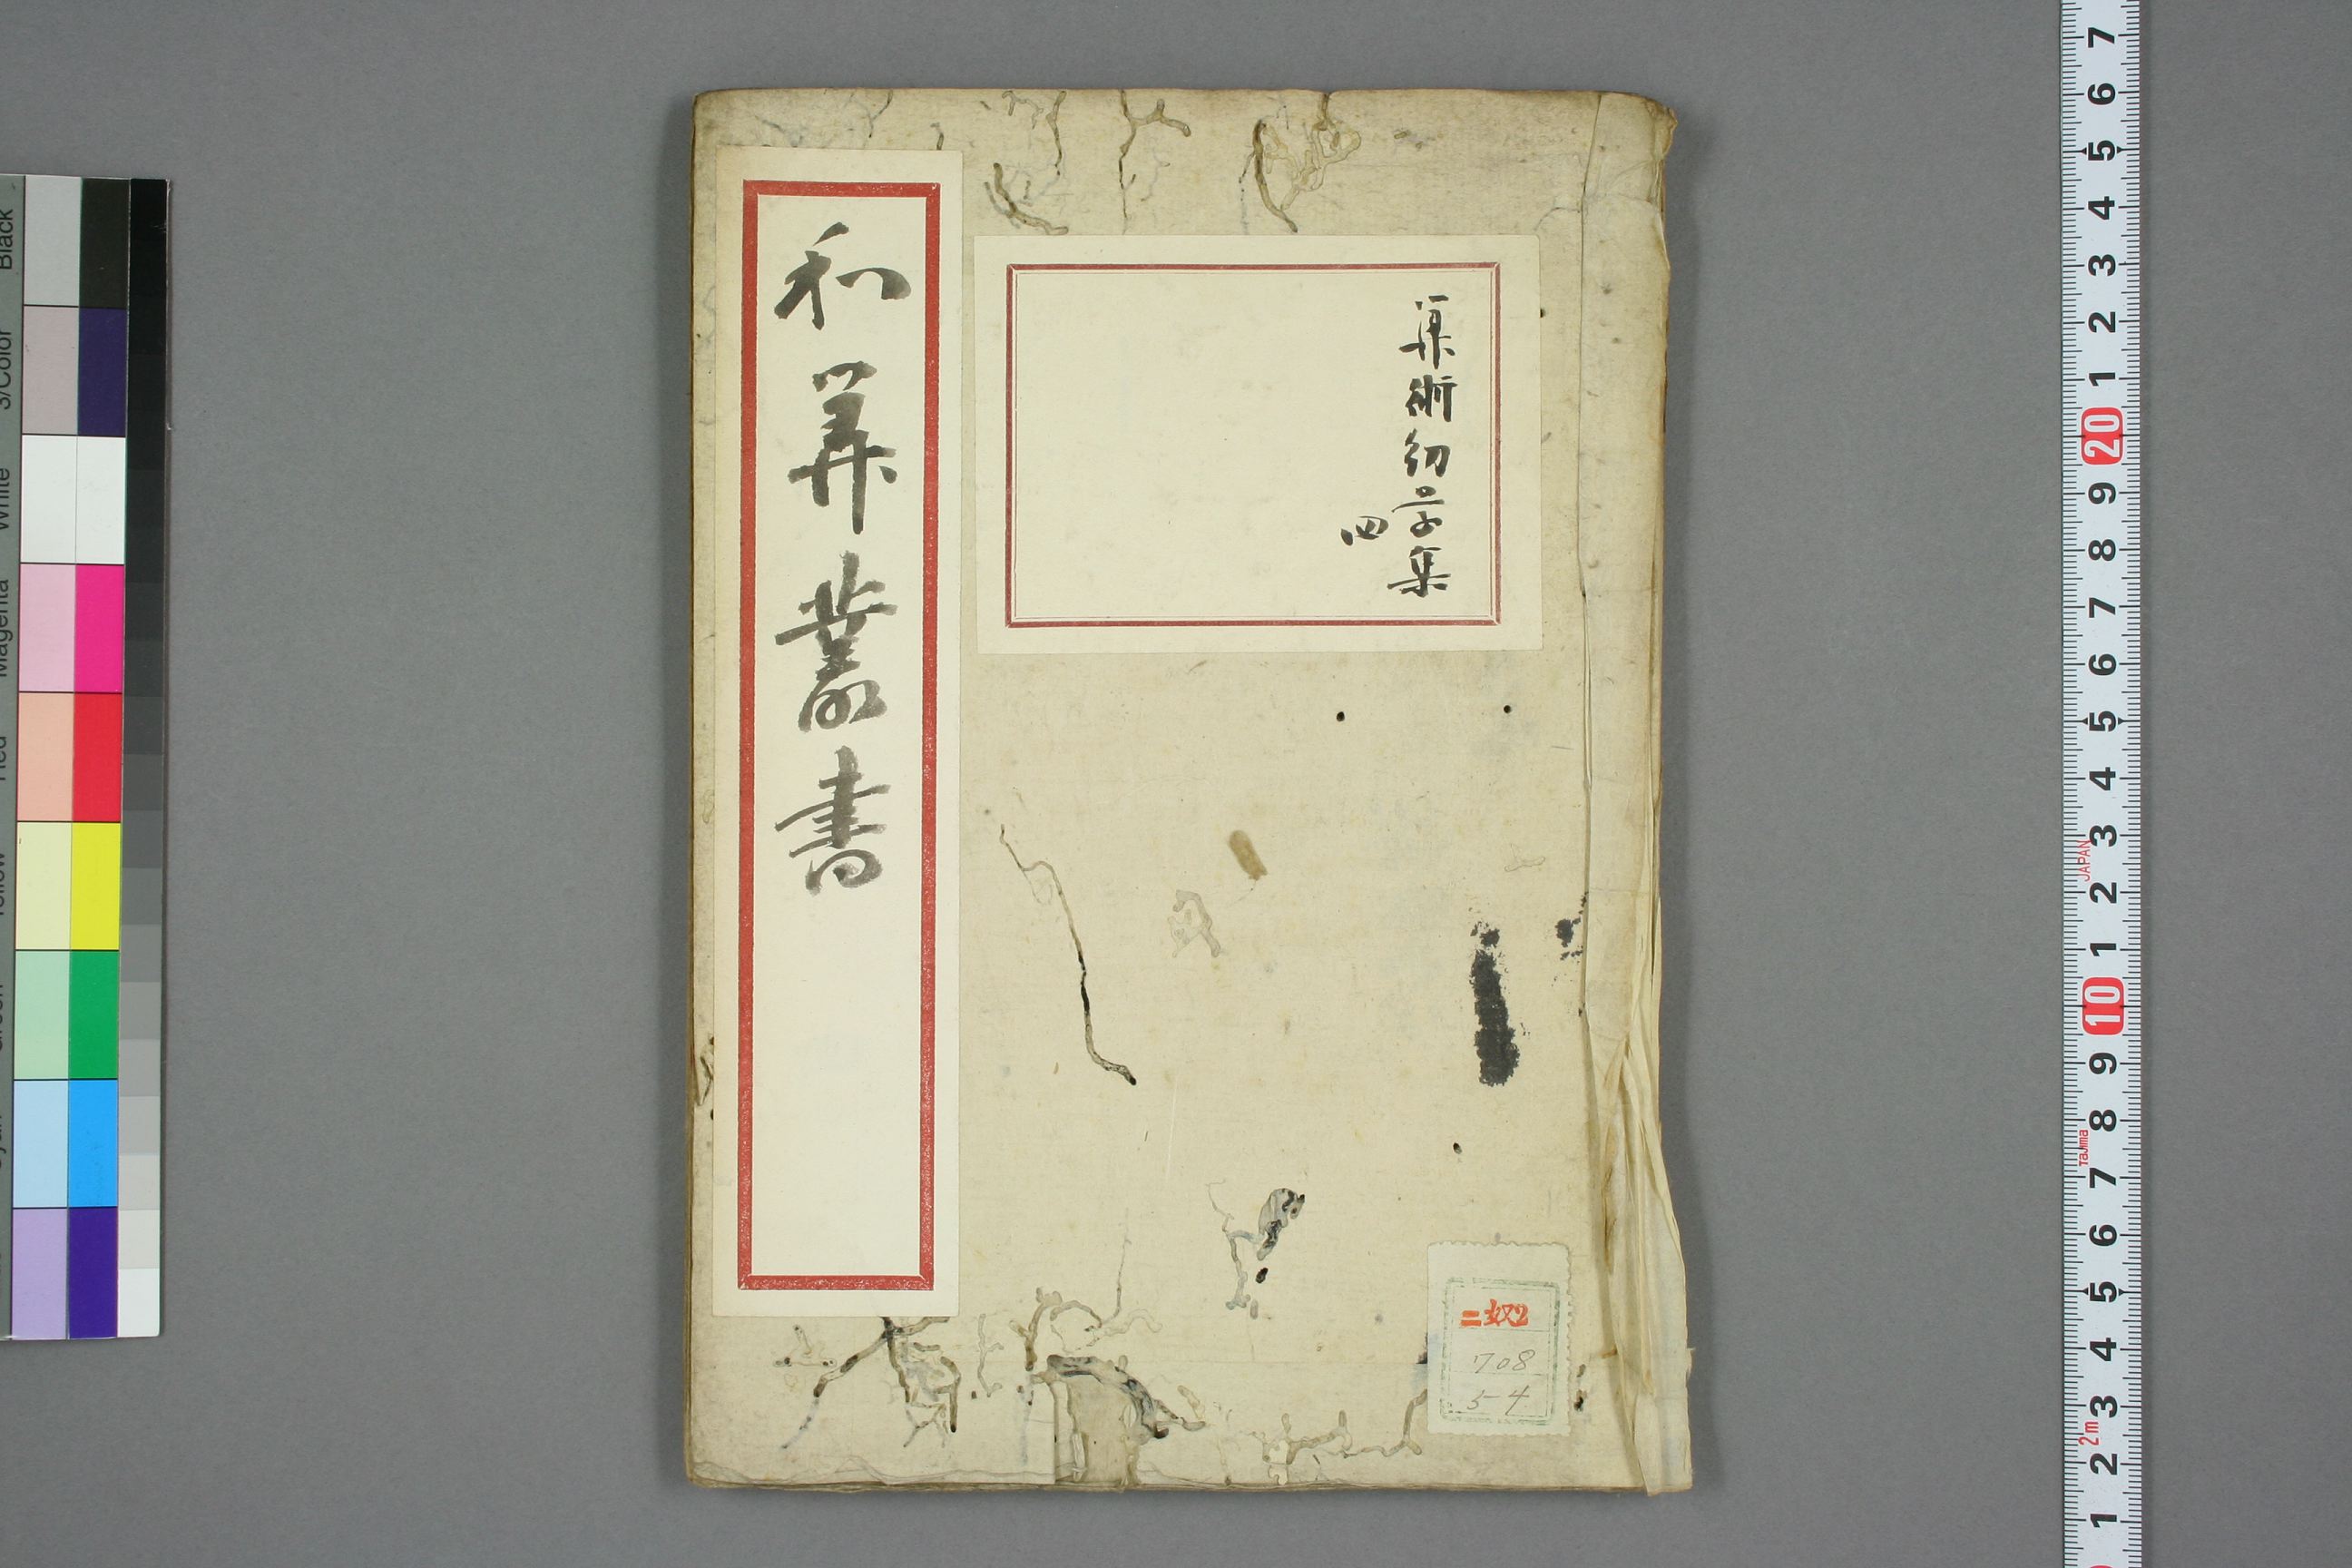 算術幼学集
四
和筭叢書
二奴2
708
54
Black
3/Color
White
Magenta
7
6
5
4
3
2
1
20
9
8
7
6
5
4
3
2
1
10
9
8
7
6
5
4
3
2
1
JAPAN
TaJIma
2m